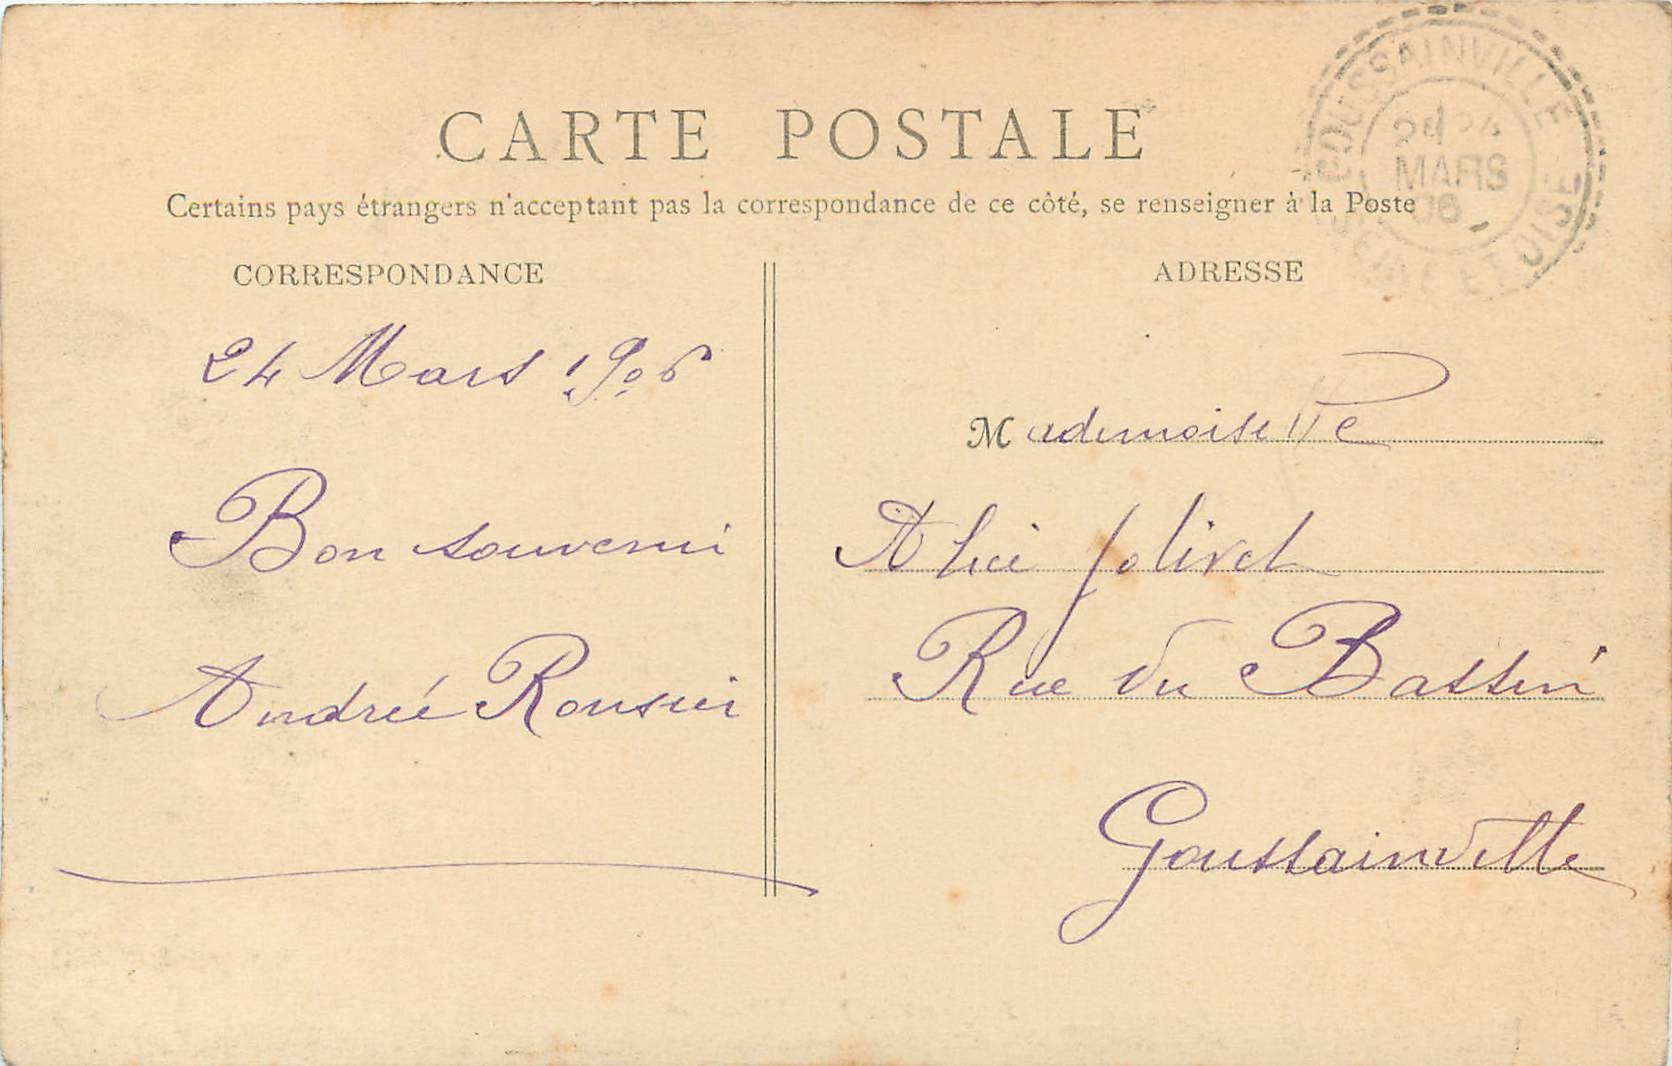 CARTE POSTALE
Certains pays étrangers n'acceptant pas la correspondance de ce côté, se renseigner à la Poste
GOUSSAINVILLE
24
MARS
06
SEINE ET OISE
CORRESPONDANCE
24 Mars 1906
Bon souvenir
Andrée Rousier
ADRESSE
Mademoiselle
Alice Jolivet
Rue du Bassin
Goussainville